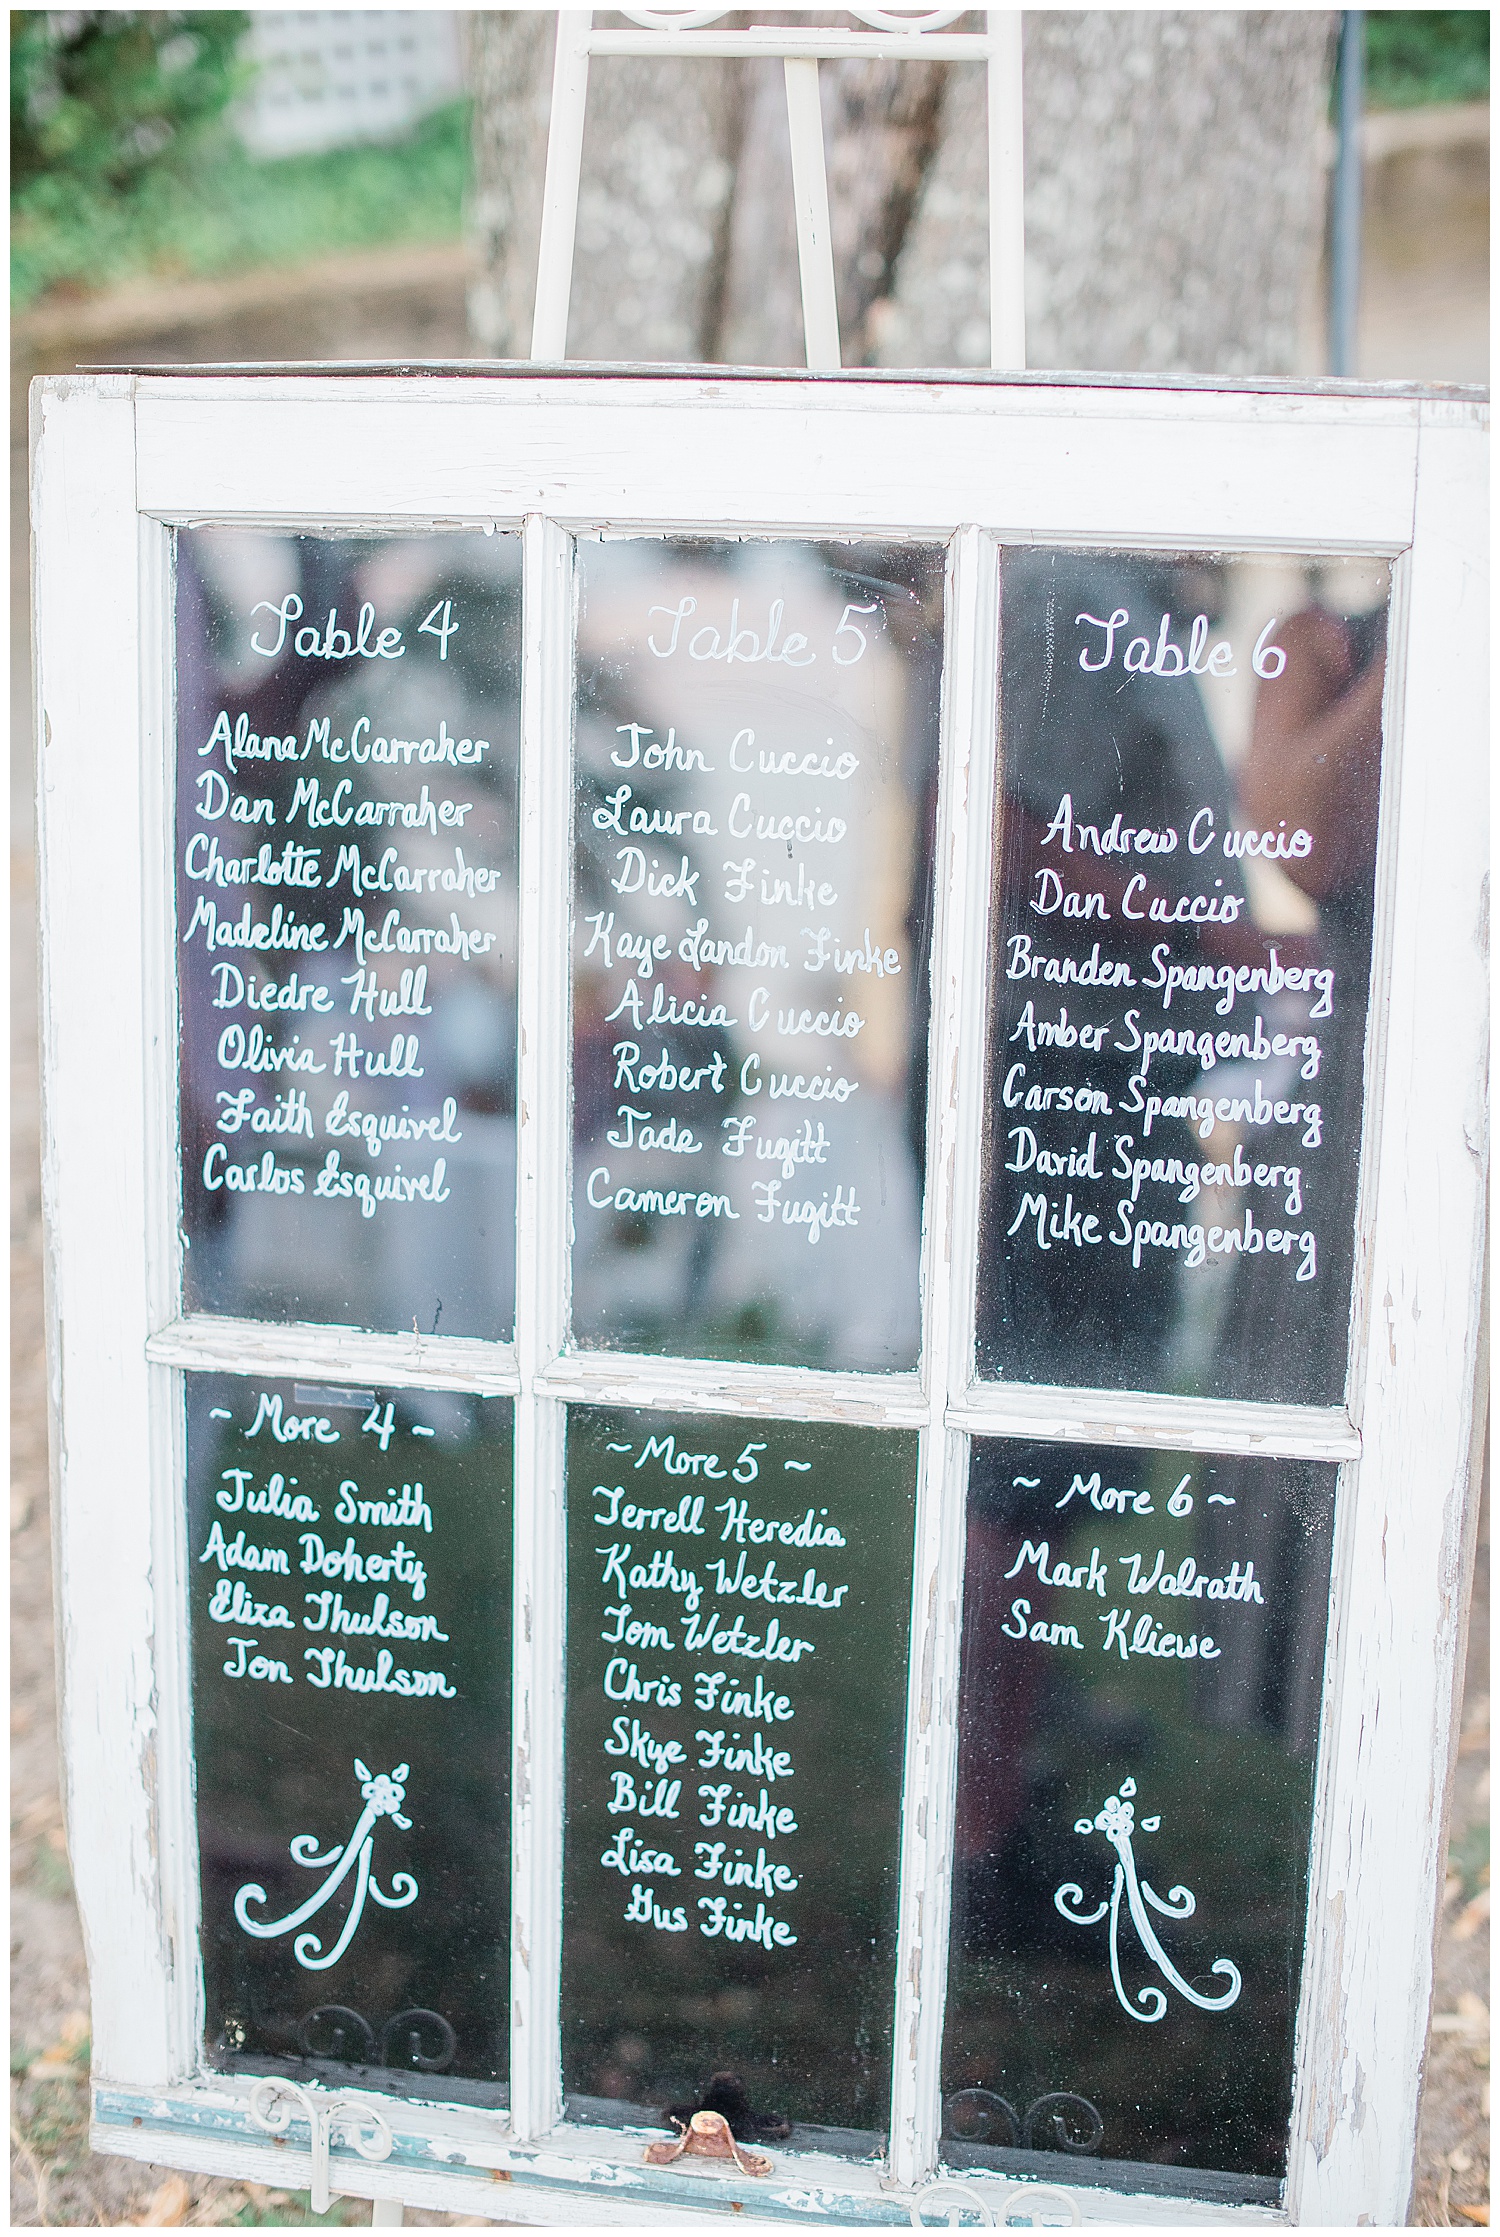 Table 4
Alana McCarraher
Dan McCarraher
Charlotte McCarraher
Madeline McCarraher
Diedre Hull
Olivia Hull
Faith Esquivel
Carlos Esquivel
Table 5
John Cuccio
Laura Cuccio
Dick Finke
Kaye Landon Finke
Alicia Cuccio
Robert Cuccio
Jade Fugitt
Cameron Fugitt
Table 6
Andrew Cuccio
Dan Cuccio
Branden Spangenberg
Amber Spangenberg
Carson Spangenberg
David Spangenberg
Mike Spangenberg
~ More 4 ~
Julia Smith
Adam Doherty
Eliza Thulson
Jon Thulson
~ More 5 ~
Terrell Heredia
Kathy Wetzler
Tom Wetzler
Chris Finke
Skye Finke
Bill Finke
Lisa Finke
Gus Finke
~ More 6 ~
Mark Walrath
Sam Kliewe